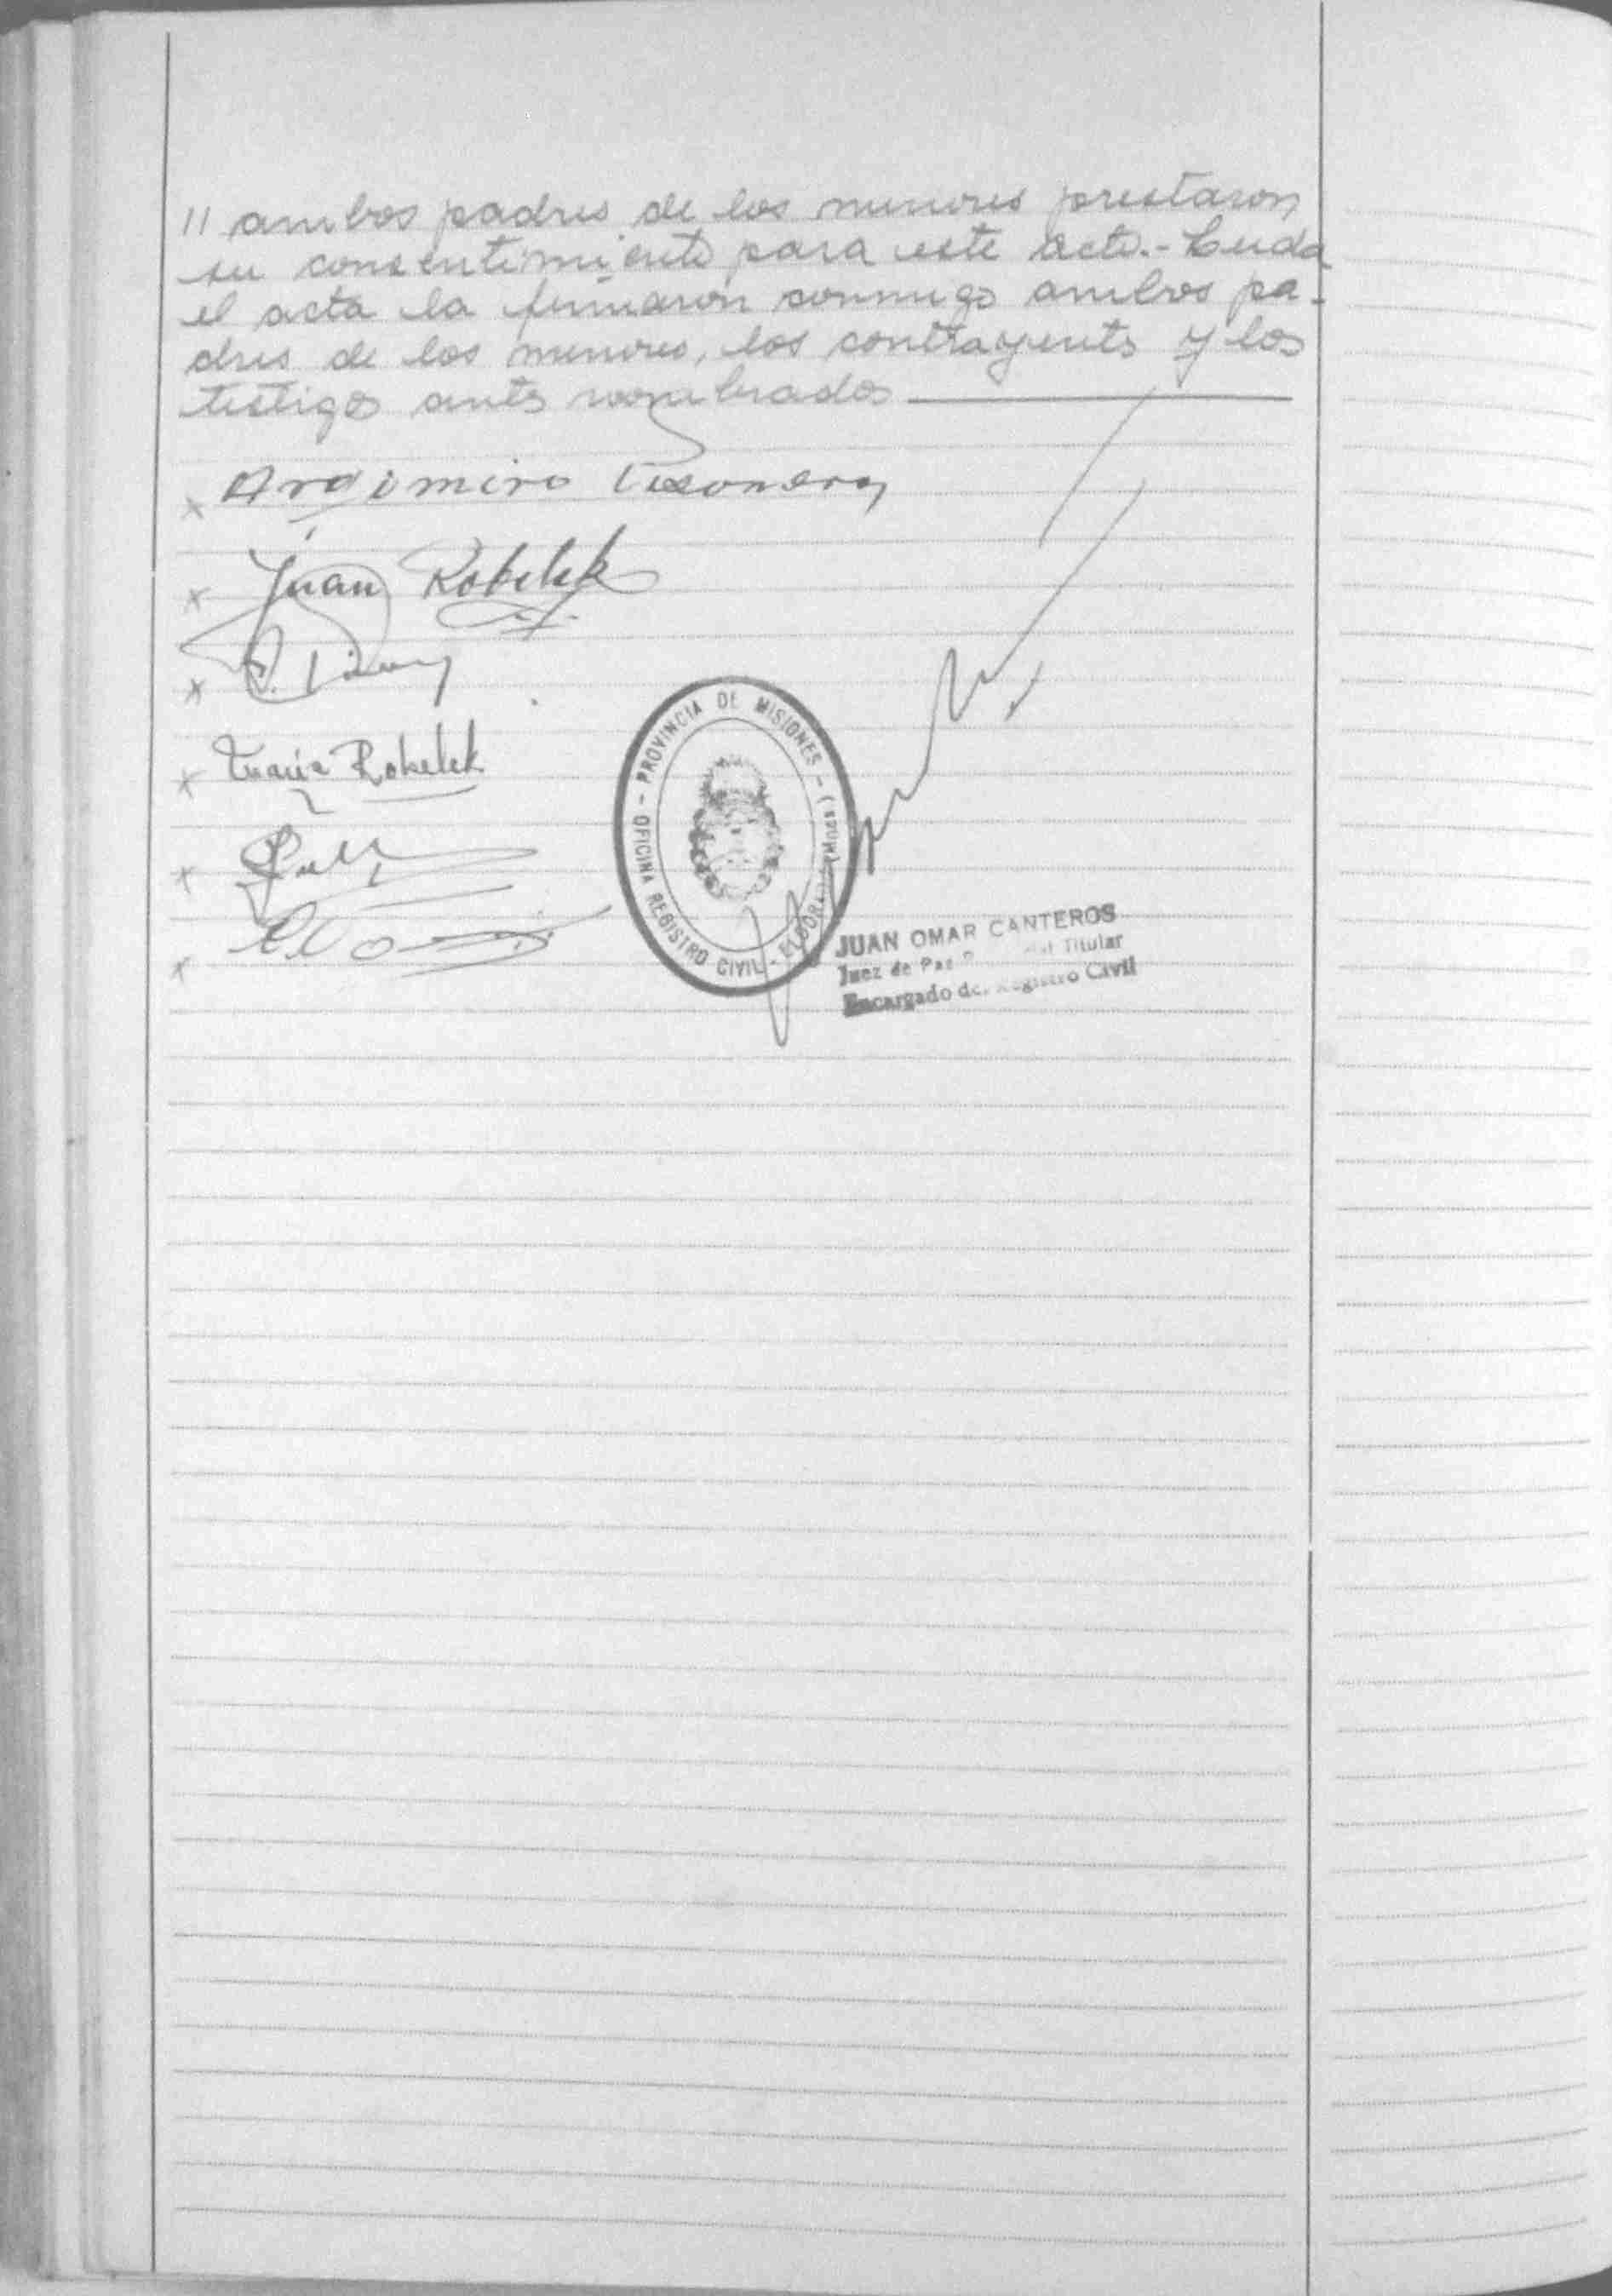 " ambos padres de los menores prestaron
su consentimiento para este acto.- Leida
el acta la firmaron conmigo ambos pa-
dres de los menores, los contrayentes y los
testigos antes nombrados
x Argimiro
x Juan Kobelek
x
x Maria Kobelek
x
x
OFICINA REGISTRO CIVIL - PROVINCIA DE MISIONES - ELDORADO (Mnes)
JUAN OMAR CANTEROS
Juez de Paz Titular
Encargado del Registro Civil